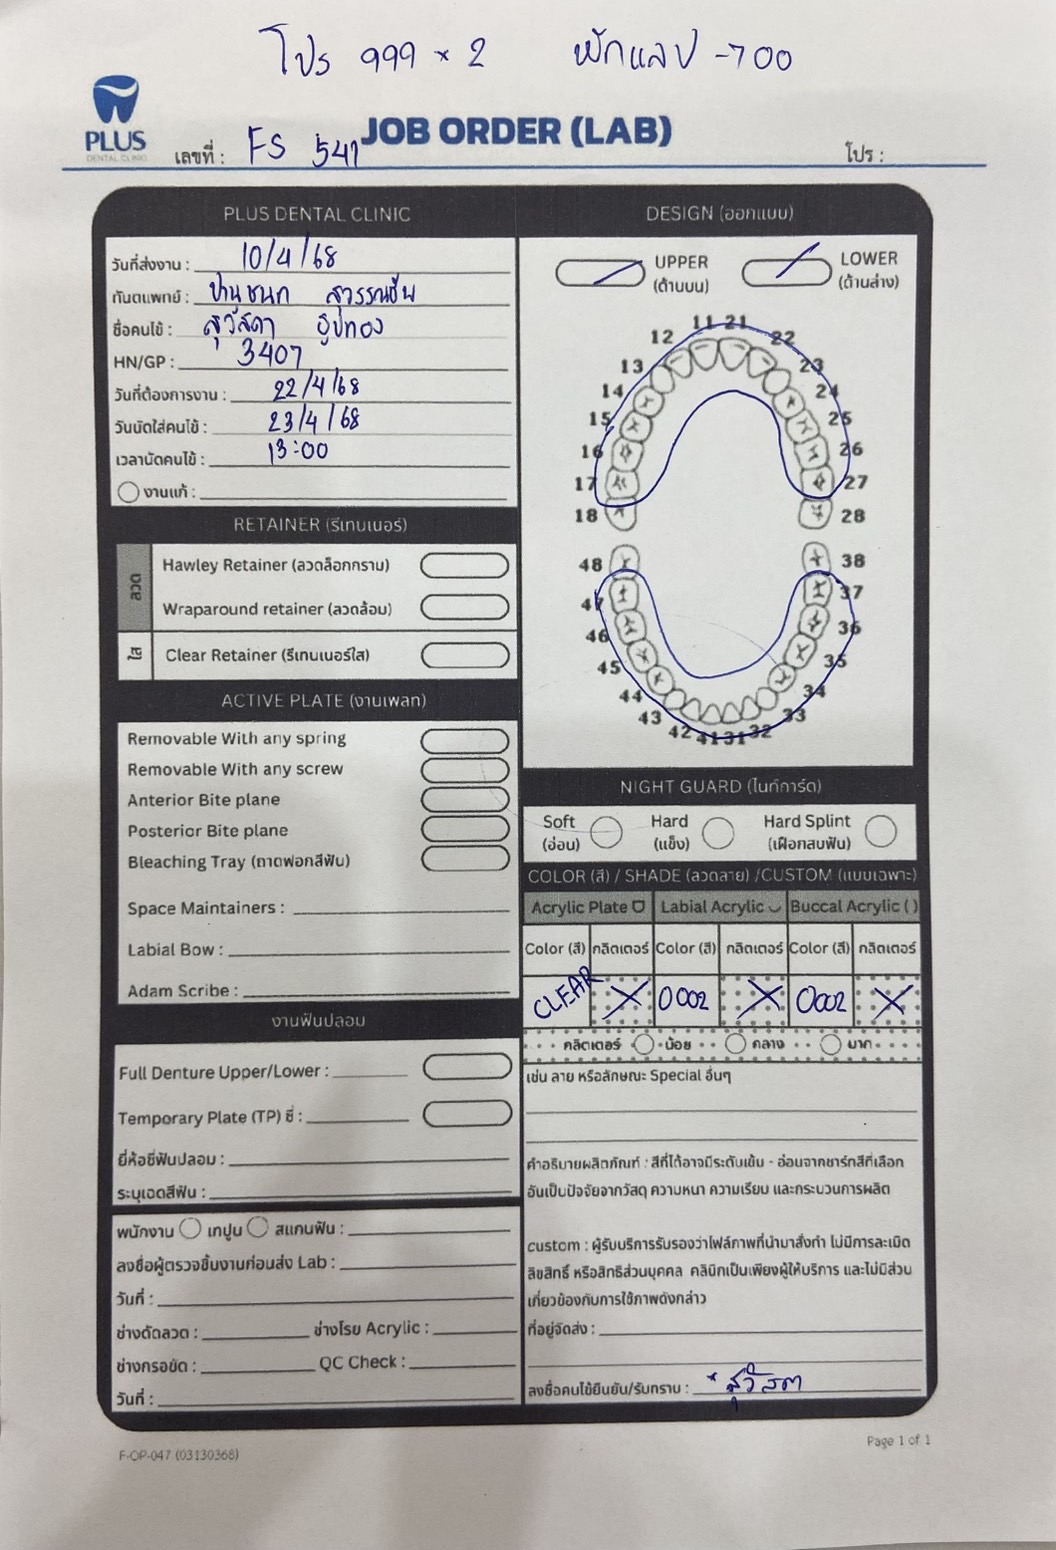 โปร 999 × 2 หักแลป -700
PLUS
DENTAL CLINIC
JOB ORDER (LAB)
เลขที่ : FS 541
โปร :
PLUS DENTAL CLINIC
วันที่ส่งงาน : 10/4/68
ทันตแพทย์ : ปานชนก สุวรรณชีพ
ชื่อคนไข้ : สุวัสดา ธูปทอง
HN/GP : 3407
วันที่ต้องการงาน : 22/4/68
วันนัดใส่คนไข้ : 23/4/68
เวลานัดคนไข้ : 13:00
งานแก้ :
RETAINER (รีเทนเนอร์)
ลวด
Hawley Retainer (ลวดล็อกกราม)
Wraparound retainer (ลวดล้อม)
ใส
Clear Retainer (รีเทนเนอร์ใส)
ACTIVE PLATE (งานเพลท)
Removable With any spring
Removable With any screw
Anterior Bite plane
Posterior Bite plane
Bleaching Tray (ถาดฟอกสีฟัน)
Space Maintainers :
Labial Bow :
Adam Scribe :
งานฟันปลอม
Full Denture Upper/Lower :
Temporary Plate (TP) ซี่ :
ยี่ห้อซี่ฟันปลอม :
ระบุเฉดสีฟัน :
พนักงาน เทปูน สแกนฟัน :
ลงชื่อผู้ตรวจชิ้นงานก่อนส่ง Lab :
วันที่ :
ช่างดัดลวด : ช่างโรย Acrylic :
ช่างกรอขัด : QC Check :
วันที่ :
DESIGN (ออกแบบ)
UPPER
(ด้านบน)
LOWER
(ด้านล่าง)
11 21
12 22
13 23
14 24
15 25
16 26
17 27
18 28
48 38
47 37
46 36
45 35
44 34
43 33
42 41 31 32
NIGHT GUARD (ไนท์การ์ด)
Soft
(อ่อน)
Hard
(แข็ง)
Hard Splint
(เฝือกสบฟัน)
COLOR (สี) / SHADE (ลวดลาย) /CUSTOM (แบบเฉพาะ)
Acrylic Plate Labial Acrylic Buccal Acrylic ( )
Color (สี) กลิตเตอร์ Color (สี) กลิตเตอร์ Color (สี) กลิตเตอร์
CLEAR X 0002 X 0002 X
กลิตเตอร์ น้อย กลาง มาก
เช่น ลาย หรือลักษณะ Special อื่นๆ
คำอธิบายผลิตภัณฑ์ : สีที่ได้อาจมีระดับเข้ม - อ่อนจากชาร์ทสีที่เลือก
อันเป็นปัจจัยจากวัสดุ ความหนา ความเรียบ และกระบวนการผลิต
custom : ผู้รับบริการรับรองว่าไฟล์ภาพที่นำมาสั่งทำ ไม่มีการละเมิด
ลิขสิทธิ์ หรือสิทธิส่วนบุคคล คลินิกเป็นเพียงผู้ให้บริการ และไม่มีส่วน
เกี่ยวข้องกับการใช้ภาพดังกล่าว
ที่อยู่จัดส่ง :
ลงชื่อคนไข้ยืนยัน/รับทราบ : * สุวัสดา
F-OP-047 (03130368)
Page 1 of 1